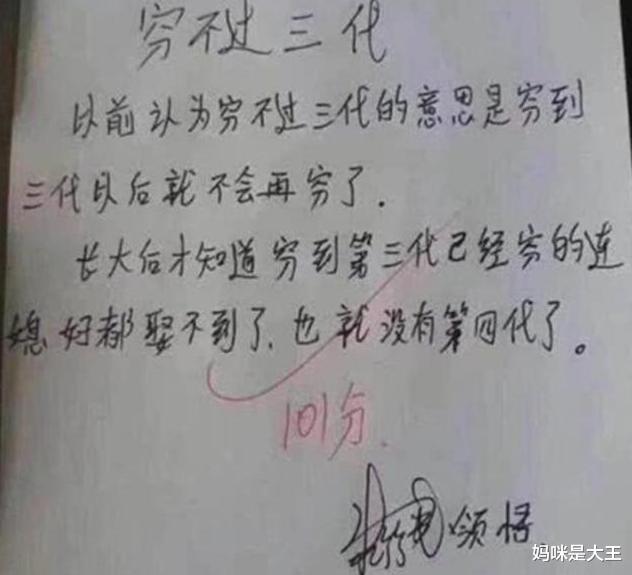 穷不过三代
以前认为穷不过三代的意思是穷到
三代以后就不会再穷了.
长大后才知道穷到第三代已经穷的连
媳好都娶不到了.也就没有第四代了。
101分.
领悟
妈咪是大王